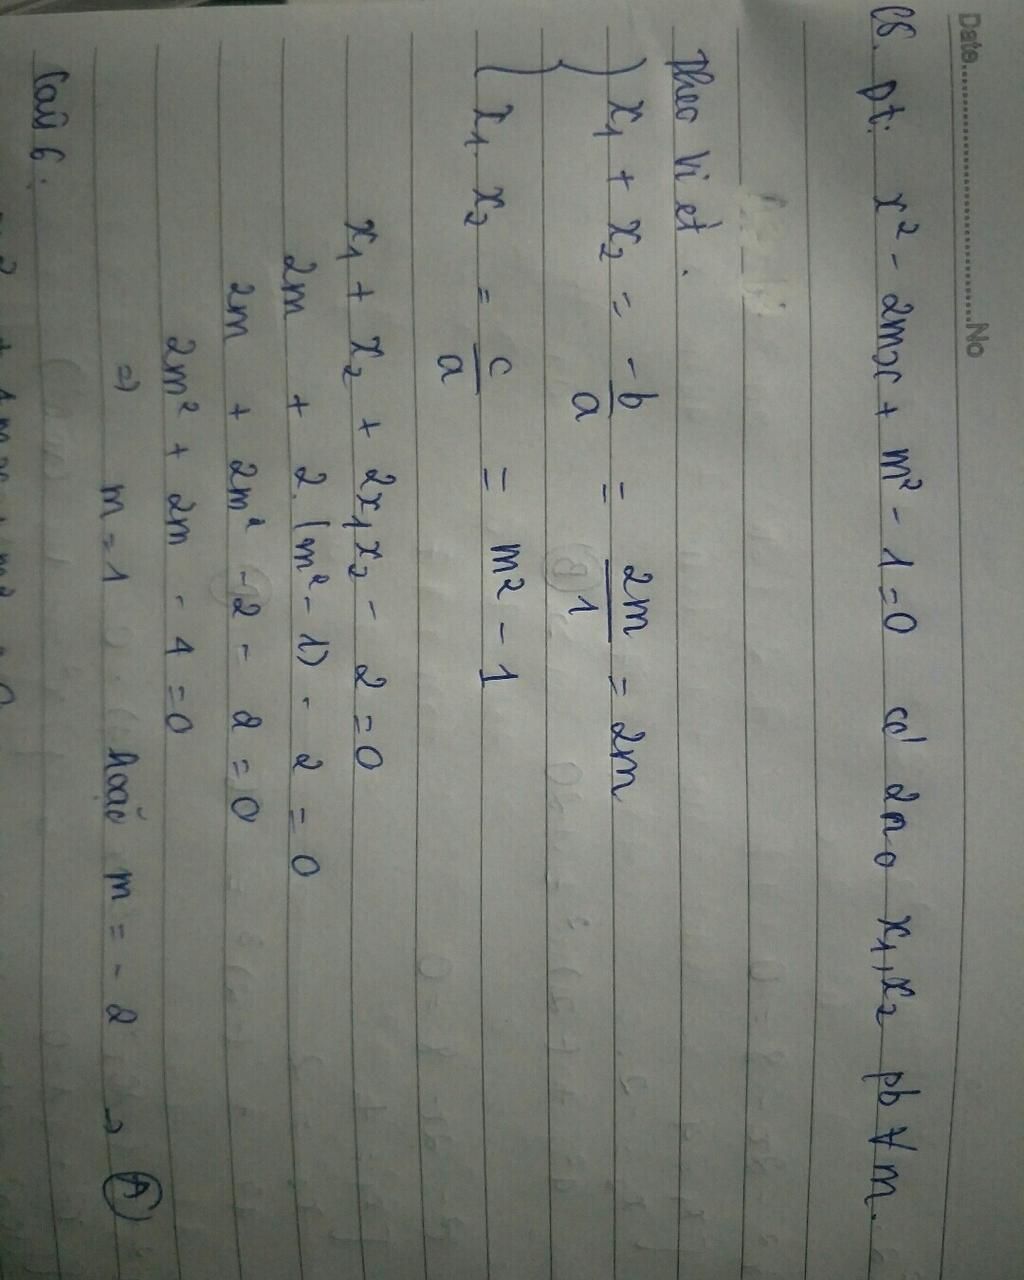 Date........................No
C5. pt: x² - 2mx + m² - 1 = 0 có 2 n₀ x₁, x₂ pb ∀ m.
Theo Vi et.
{ x₁ + x₂ = -b/a = 2m/1 = 2m
x₁. x₂ = c/a = m² - 1
x₁ + x₂ + 2x₁x₂ - 2 = 0
2m + 2.(m² - 1) - 2 = 0
2m + 2m² - 2 - 2 = 0
2m² + 2m - 4 = 0
=> m = 1 hoặc m = - 2 → A
Câu 6.